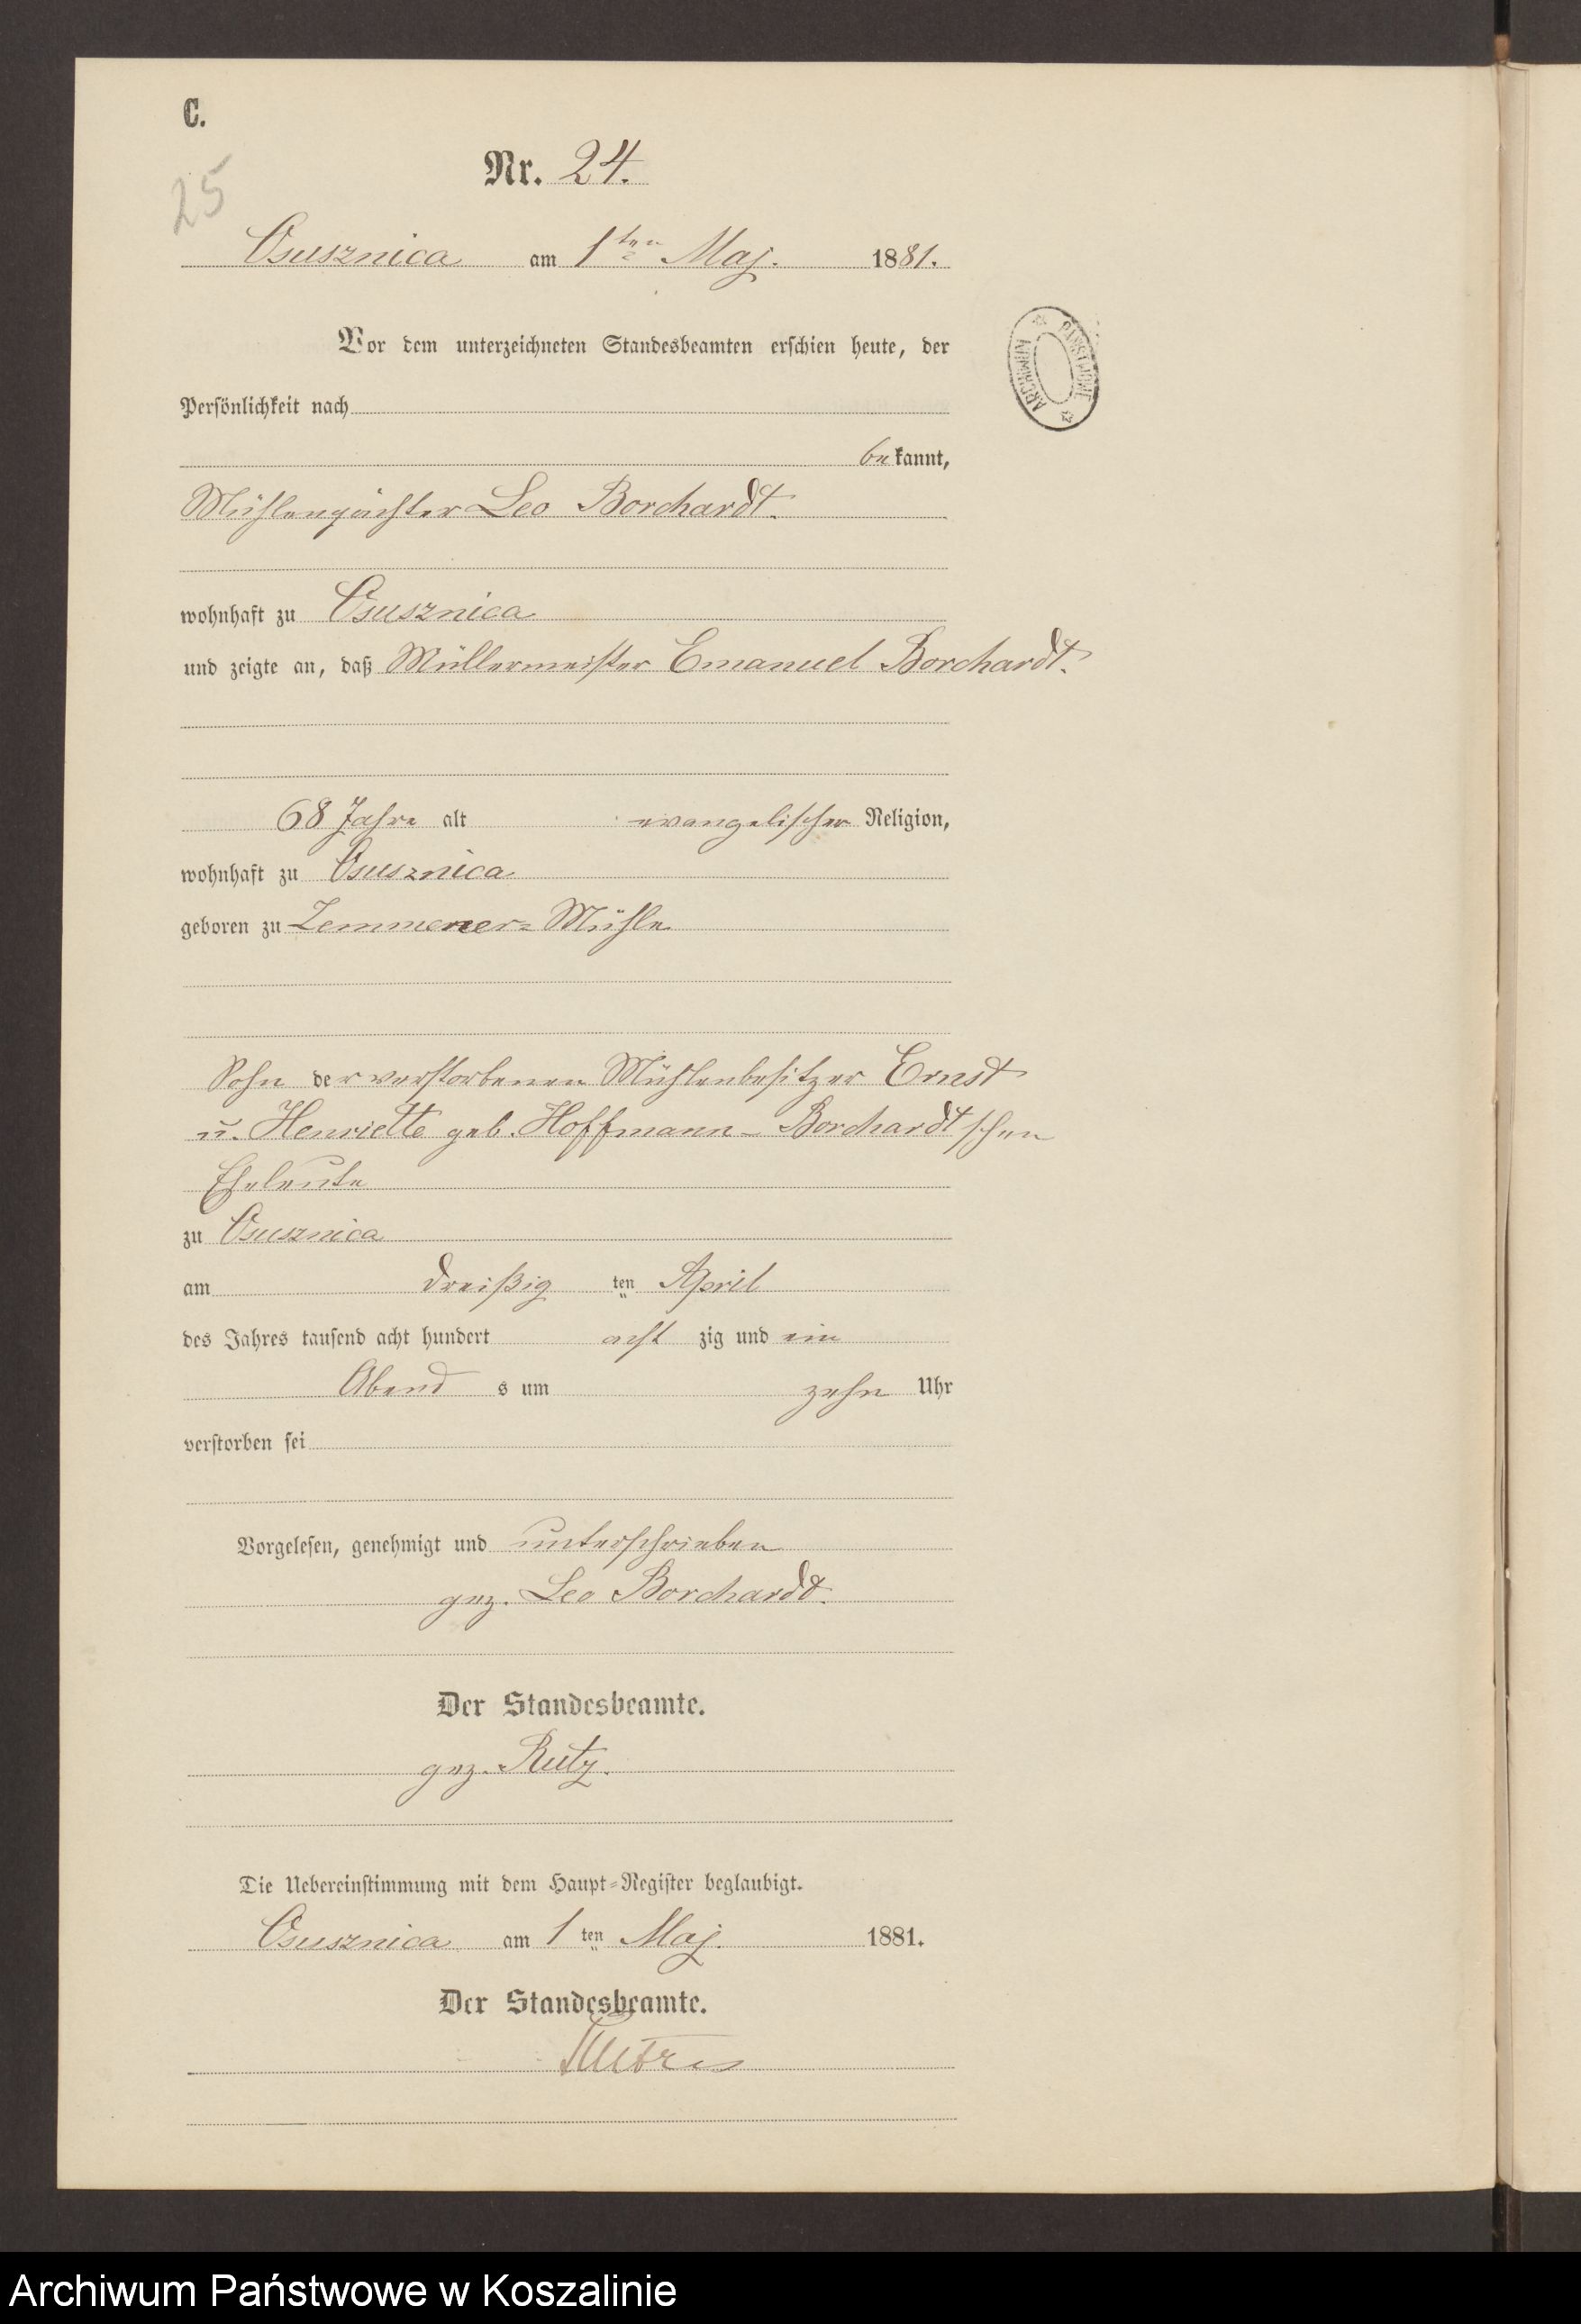 C.
25
Nr. 24.
Osusznica am 1ten Maj. 1881.
Vor dem unterzeichneten Standesbeamten erschien heute, der
Persönlichkeit nach
bekannt,
Mühlenpächter Leo Borchardt.
wohnhaft zu Osusznica
und zeigte an, daß Müllermeister Emanuel Borchardt.
68 Jahre alt evangelischer Religion,
wohnhaft zu Osusznica
geboren zu Zemmener-Mühle
Sohn der verstorbenen Mühlenbesitzer Ernst
u. Henriette geb. Hoffmann-Borchardtschen
Eheleute
zu Osusznica
am dreißig ten April
des Jahres tausend acht hundert acht zig und ein
Abend s um zehn Uhr
verstorben sei
Vorgelesen, genehmigt und unterschrieben
gez. Leo Borchardt.
Der Standesbeamte.
gez. Rutz.
Die Uebereinstimmung mit dem Haupt-Register beglaubigt.
Osusznica am 1 ten Maj. 1881.
Der Standesbeamte.
ARCHIWUM PAŃSTWOWE
Archiwum Państwowe w Koszalinie